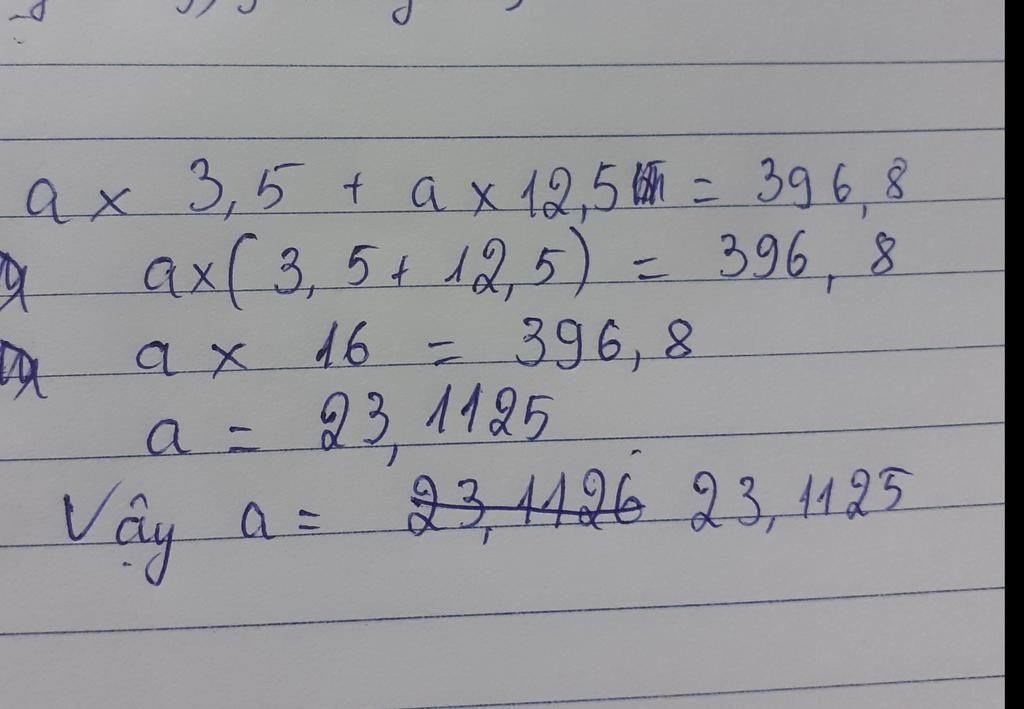 a x 3,5 + a x 12,5 = 396,8
a x ( 3,5 + 12,5 ) = 396,8
a x 16 = 396,8
a = 23,1125
Vậy a = 23,1126 23,1125